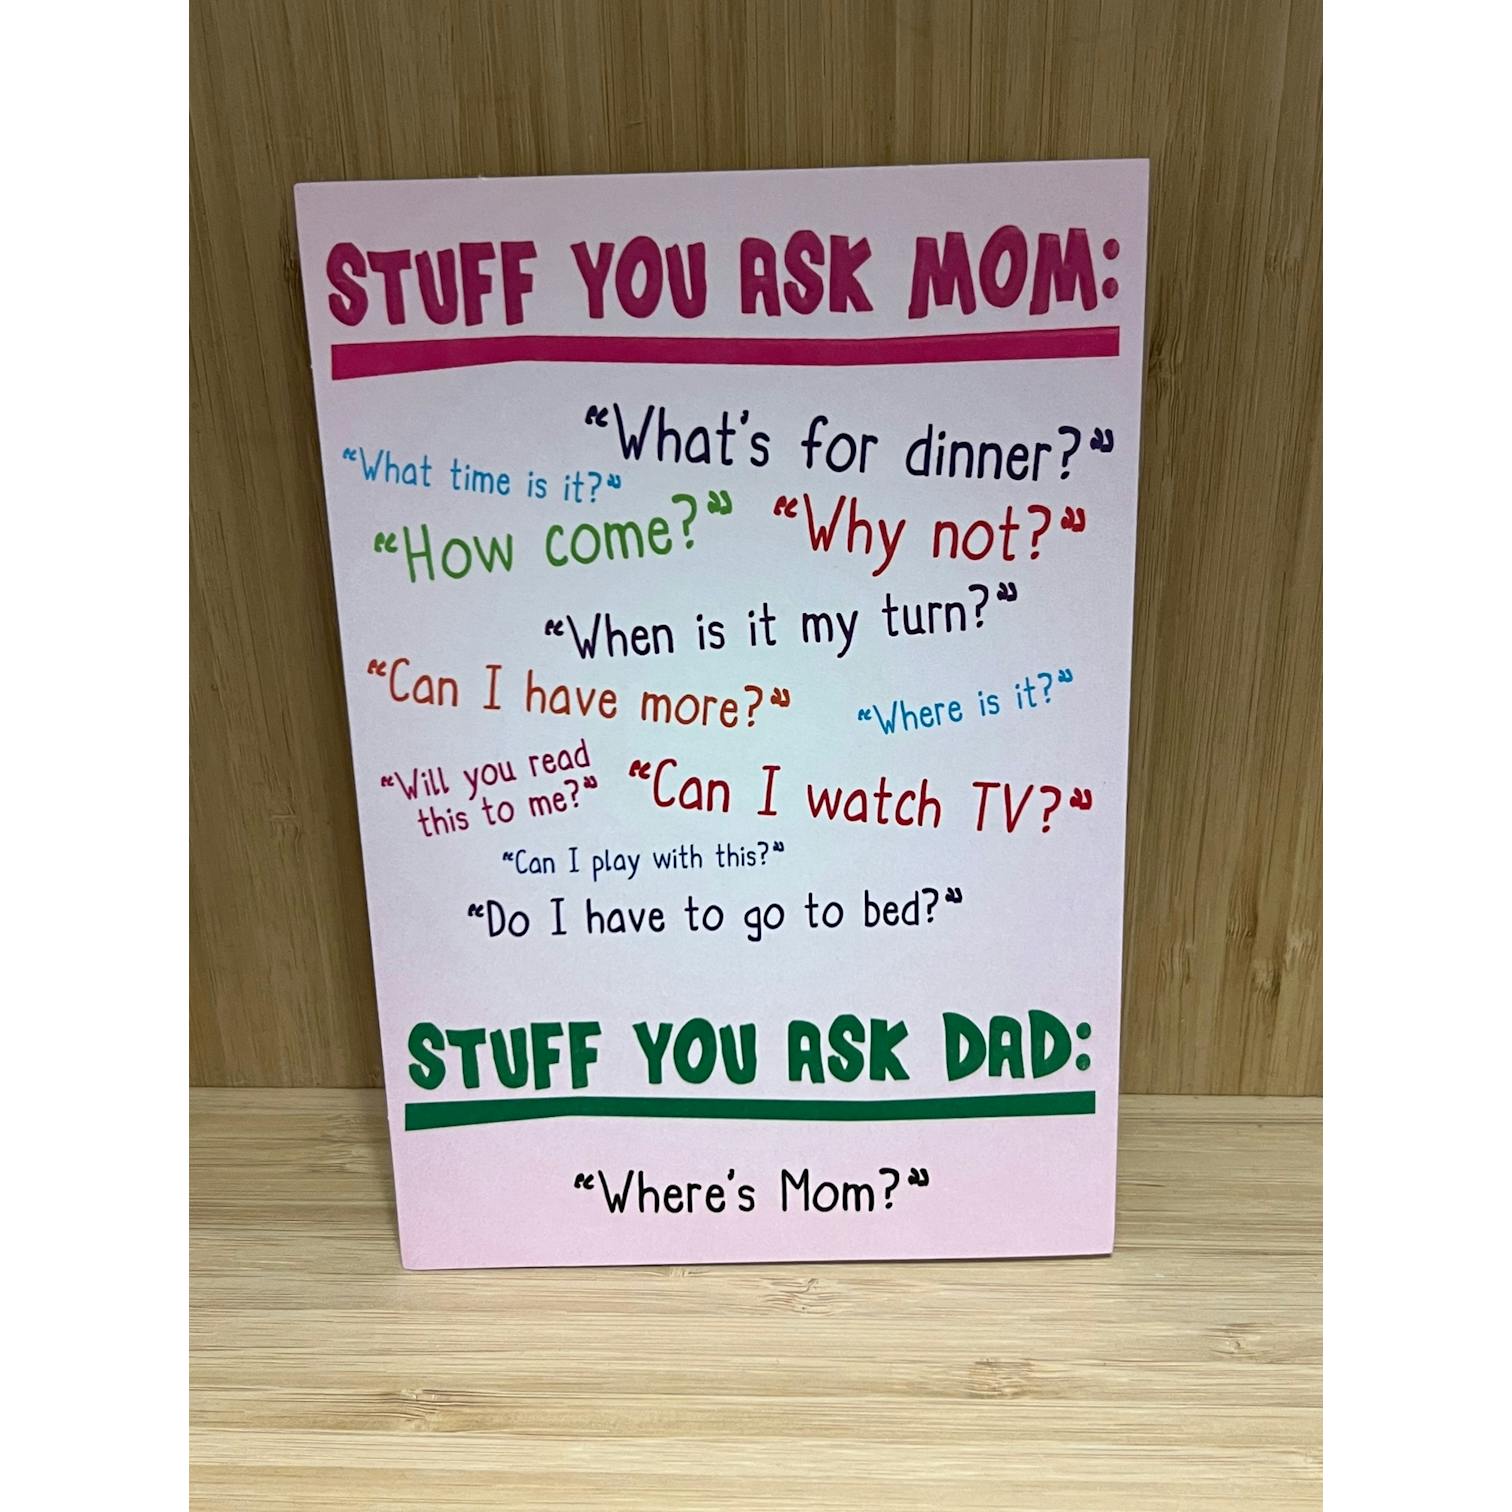 STUFF YOU ASK MOM:
“What's for dinner?”
“What time is it?”
“How come?” “Why not?”
“When is it my turn?”
“Can I have more?”
“Where is it?”
“Will you read
this to me?”
“Can I watch TV?”
“Can I play with this?”
“Do I have to go to bed?”
STUFF YOU ASK DAD:
“Where's Mom?”